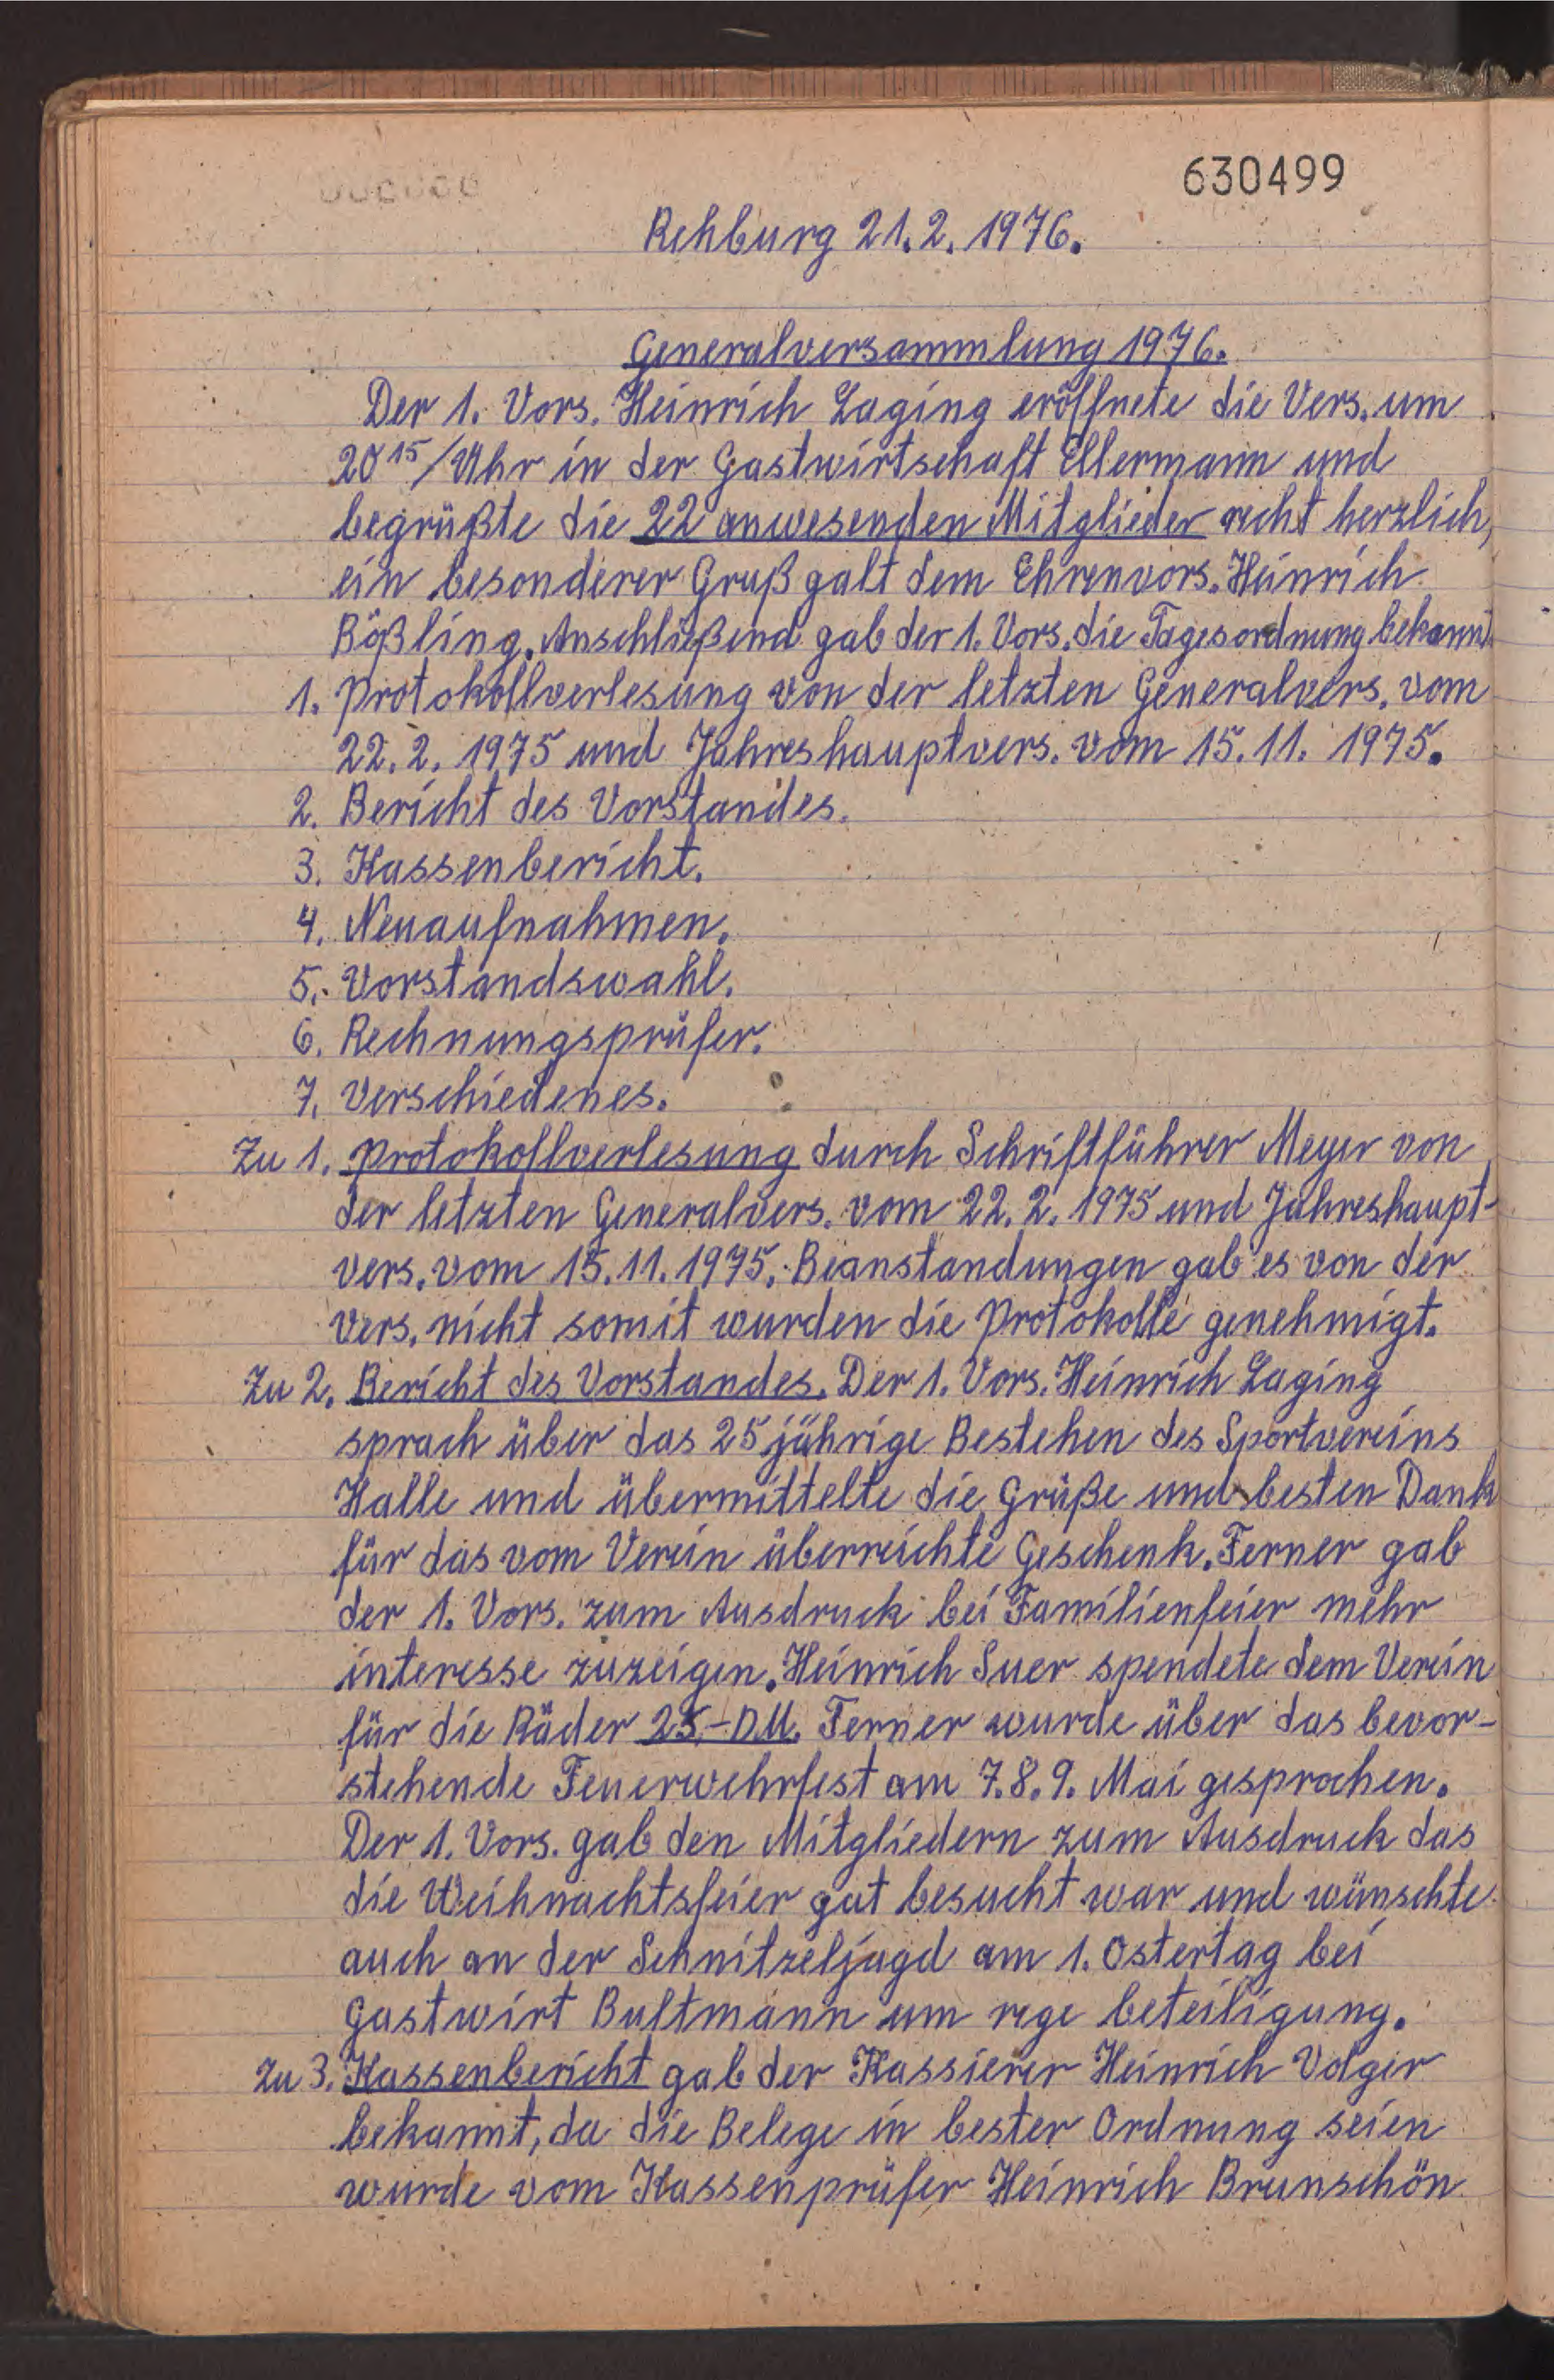 630499
Rehburg 21.2.1976.
Generalversammlung 1976.
Der 1. Vors. Heinrich Laging eröffnete die Vers. um
20 15/Uhr in der Gastwirtschaft Ellermann und
begrüßte die 22 anwesenden Mitglieder recht herzlich,
ein besonderer Gruß galt dem Ehrenvors. Heinrich
Bößling. Anschließend gab der 1. Vors. die Tagesordnung bekannt.
1. Protokollverlesung von der letzten Generalvers. vom
22.2.1975 und Jahreshauptvers. vom 15.11.1975.
2. Bericht des Vorstandes.
3. Kassenbericht.
4. Neuaufnahmen.
5. Vorstandswahl.
6. Rechnungsprüfer.
7. Verschiedenes.
Zu 1. Protokollverlesung durch Schriftführer Meyer von
der letzten Generalvers. vom 22.2.1975 und Jahreshaupt-
vers. vom 15.11.1975. Beanstandungen gab es von der
Vers. nicht somit wurden die Protokolle genehmigt.
Zu 2. Bericht des Vorstandes. Der 1. Vors. Heinrich Laging
sprach über das 25 jährige Bestehen des Sportvereins
Halle und übermittelte die Grüße und besten Dank
für das vom Verein überreichte Geschenk. Ferner gab
der 1. Vors. zum Ausdruck bei Familienfeier mehr
interesse zuzeigen. Heinrich Suer spendete dem Verein
für die Räder 25,-DM. Ferner wurde über das bevor-
stehende Feuerwehrfest am 7.8.9. Mai gesprochen.
Der 1. Vors. gab den Mitgliedern zum Ausdruck das
die Weihnachtsfeier gut besucht war und wünschte
auch an der Schnitzeljagd am 1. Ostertag bei
Gastwirt Bultmann um rege beteiligung.
Zu 3. Kassenbericht gab der Kassierer Heinrich Volger
bekannt, da die Belege in bester Ordnung seien
wurde vom Kassenprüfer Heinrich Brunschön